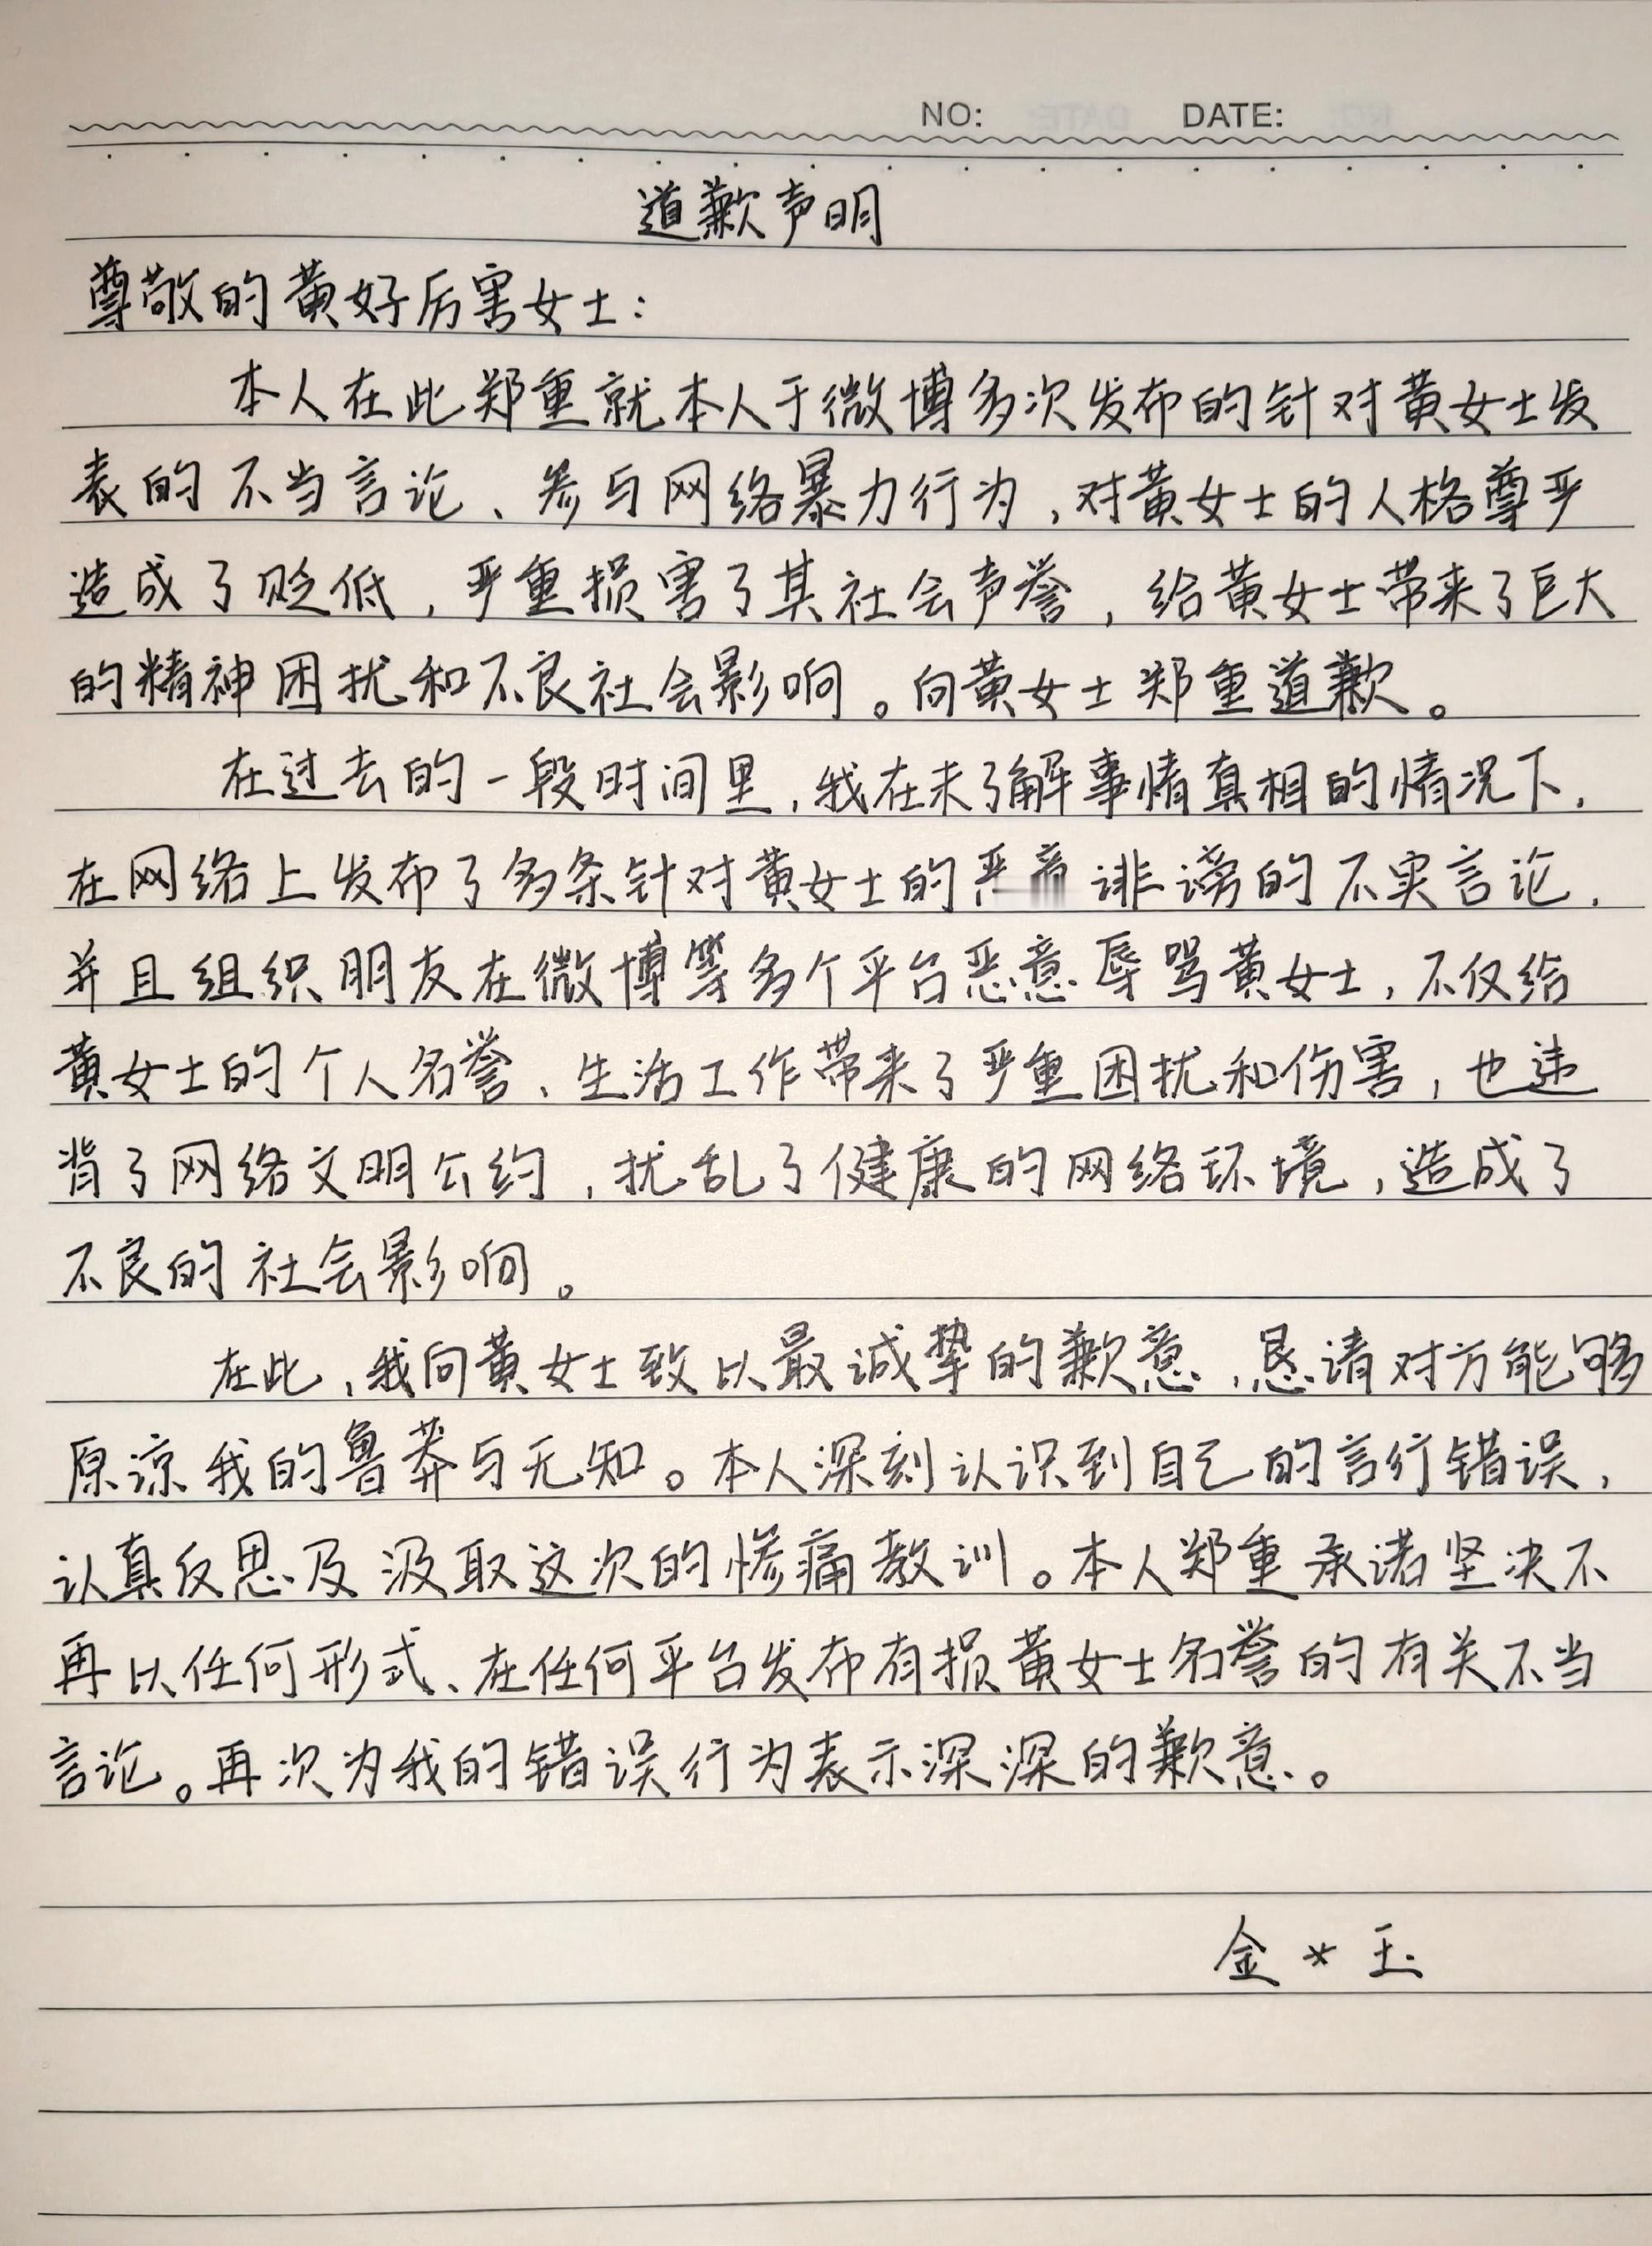 NO: DATE:
道歉声明
尊敬的黄好厉害女士:
本人在此郑重就本人于微博多次发布的针对黄女士发
表的不当言论、参与网络暴力行为,对黄女士的人格尊严
造成了贬低,严重损害了其社会声誉,给黄女士带来了巨大
的精神困扰和不良社会影响。向黄女士郑重道歉。
在过去的一段时间里,我在未了解事情真相的情况下,
在网络上发布了多条针对黄女士的 诽谤的不实言论,
并且组织朋友在微博等多个平台恶意辱骂黄女士,不仅给
黄女士的个人名誉、生活工作带来了严重困扰和伤害,也违
背了网络文明公约,扰乱了健康的网络环境,造成了
不良的社会影响。
在此,我向黄女士致以最诚挚的歉意,恳请对方能够
原谅我的鲁莽与无知。本人深刻认识到自己的言行错误,
认真反思及汲取这次的惨痛教训。本人郑重承诺坚决不
再以任何形式、在任何平台发布有损黄女士名誉的有关不当
言论。再次为我的错误行为表示深深的歉意。
金*玉